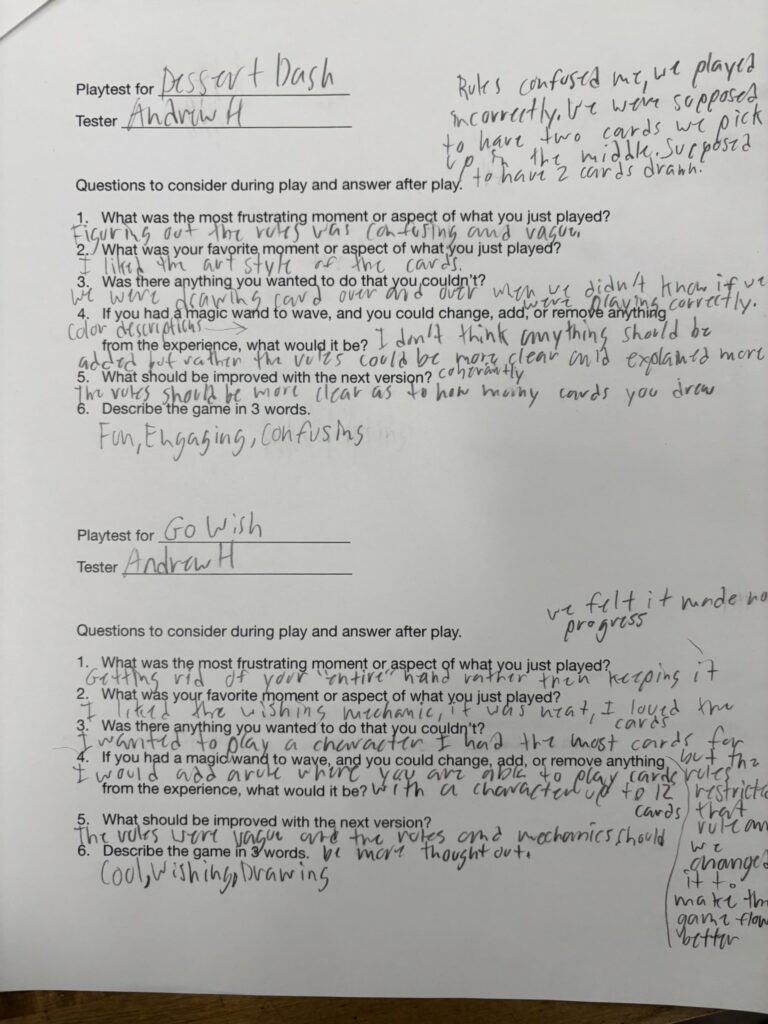 Playtest for Dessert Dash
Tester Andrew H
Rules confused me, we played
incorrectly. We were supposed
to have two cards we pick
up in the middle. Supposed
to have 2 cards drawn.
Questions to consider during play and answer after play.
1. What was the most frustrating moment or aspect of what you just played?
Figuring out the rules was confusing and vague.
2. What was your favorite moment or aspect of what you just played?
I liked the art style of the cards.
3. Was there anything you wanted to do that you couldn't?
We were drawing card over and over when we didn't know if we
were playing correctly.
4. If you had a magic wand to wave, and you could change, add, or remove anything
color descriptions
from the experience, what would it be? I don't think anything should be
added but rather the rules could be more clear and explained more
coherantly
5. What should be improved with the next version?
The rules should be more clear as to how many cards you draw
6. Describe the game in 3 words.
Fun, Engaging, Confusing
Playtest for Go Wish
Tester Andrew H
we felt it made no
progress
Questions to consider during play and answer after play.
1. What was the most frustrating moment or aspect of what you just played?
Getting rid of your "entire" hand rather then keeping it
2. What was your favorite moment or aspect of what you just played?
I liked the wishing mechanic, it was neat, I loved the
cards
3. Was there anything you wanted to do that you couldn't?
I wanted to play a character I had the most cards for
but the
rules
restricted
that
rule and
we
changed
it to
make the
game flow
better
4. If you had a magic wand to wave, and you could change, add, or remove anything
I would add a rule where you are able to play cards
from the experience, what would it be? with a character up to 12
cards
5. What should be improved with the next version?
The rules were vague and the rules and mechanics should
be more thought out.
6. Describe the game in 3 words.
Cool, Wishing, Drawing